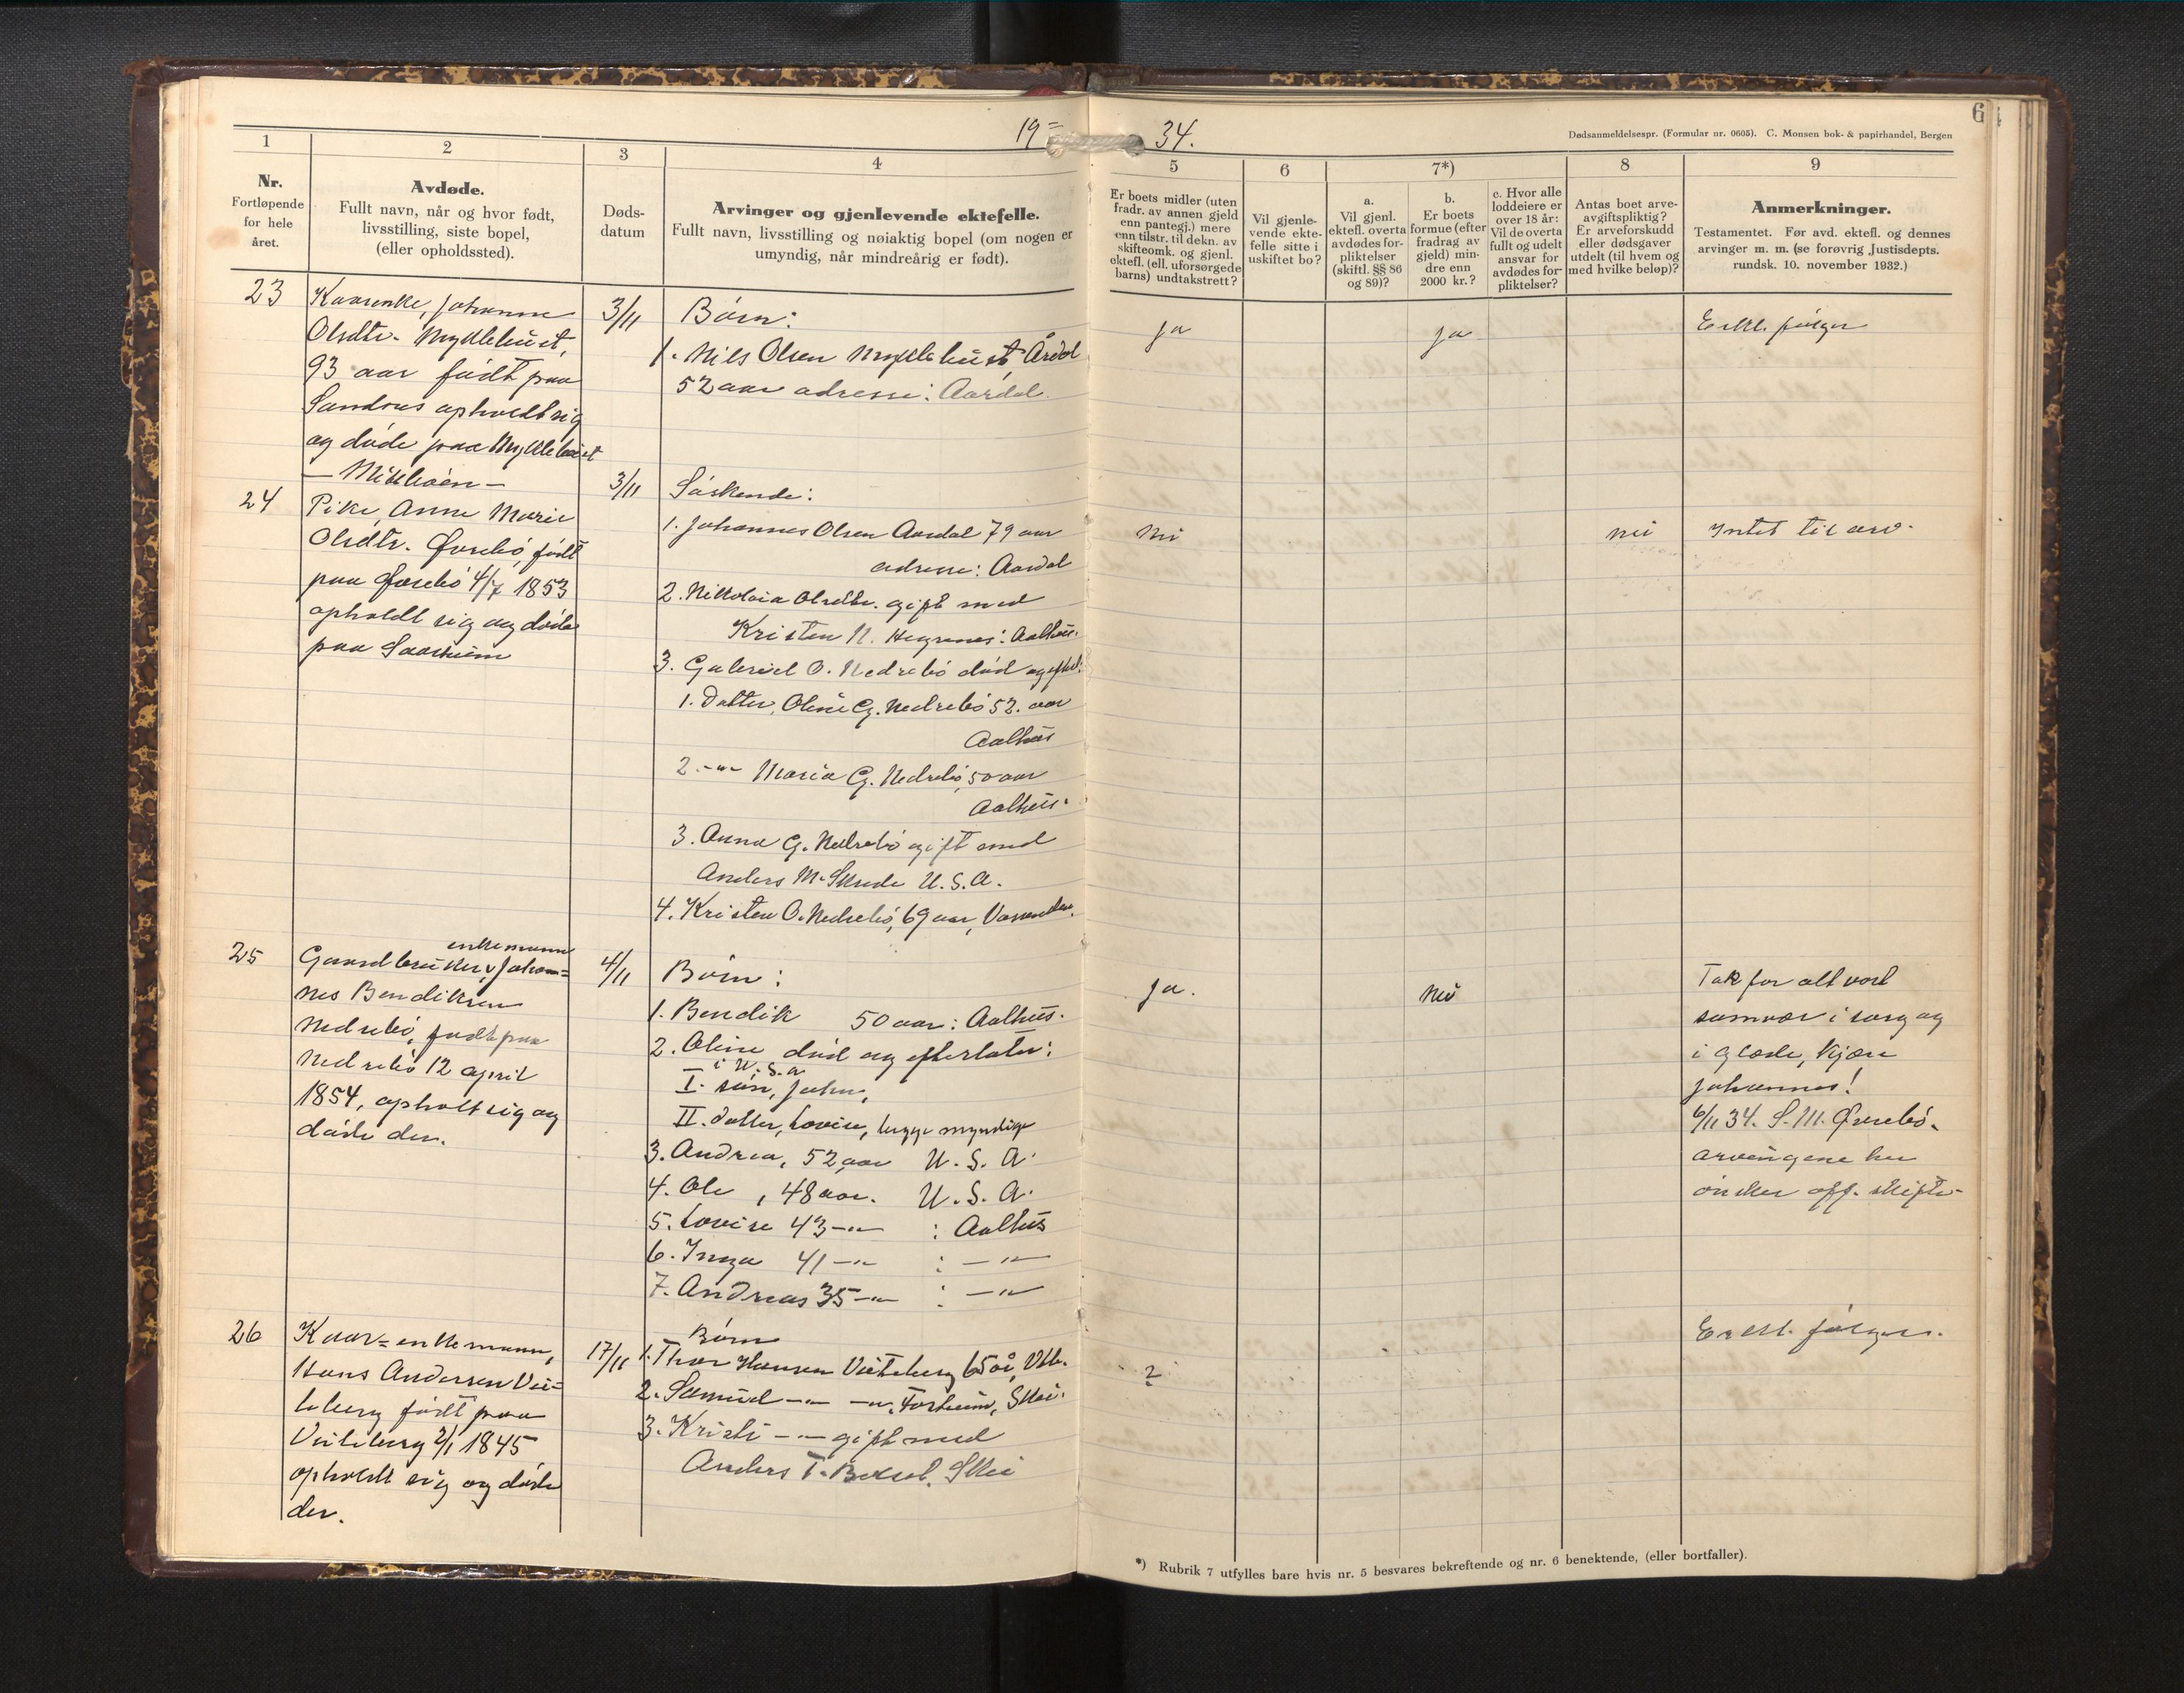 19 34.
6
Dødsanmeldelsespr. (Formular nr. 0605). C. Monsen bok- & papirhandel, Bergen
1
Nr.
Fortløpende
for hele
året.
2
Avdøde.
Fullt navn, når og hvor født,
livsstilling, siste bopel,
(eller opholdssted).
3
Døds-
datum
4
Arvinger og gjenlevende ektefelle.
Fullt navn, livsstilling og nøiaktig bopel (om nogen er
umyndig, når mindreårig er født).
5
Er boets midler (uten
fradr. av annen gjeld
enn pantegj.) mere
enn tilstr. til dekn. av
skifteomk. og gjenl.
ektefl. (ell. uforsørgede
barns) undtakstrett?
6
Vil gjenle-
vende ekte-
felle sitte i
uskiftet bo?
7*)
a.
Vil gjenl.
ektefl. overta
avdødes for-
pliktelser
(skiftl. §§ 86
og 89)?
b.
Er boets
formue (efter
fradrag av
gjeld) min-
dre enn
2000 kr.?
c. Hvor alle
loddeiere er
over 18 år:
Vil de overta
fullt og udelt
ansvar for
avdødes for-
pliktelser?
8
Antas boet arve-
avgiftspliktig?
Er arveforskudd
eller dødsgaver
utdelt (til hvem og
med hvilke beløp)?
9
Anmerkninger.
Testamentet. Før avd. ektefl. og dennes
arvinger m. m. (se forøvrig Justisdepts.
rundsk. 10. november 1932.)
23
Kaarenke, Johanne
Olsdtr. Myklebust,
93 aar født paa
Sandnes opholdt sig
og døde paa Myklebust
3/11
Børn:
1. Nils Olsen Myklebust, Årdal
52 aar adresse: Aardal.
ja
ja
Erkl. følger
24
Pike, Anne Marie
Olsdtr. Øvrebø, født
paa Øvrebø 4/7 1853
opholdt sig og døde
paa
3/11
Søskende:
1. Johannes Olsen Aardal 79 aar
adresse: Aardal
2. Nikolaia Olsdtr. gift med
Kristen N. Hegrenes: Aalhus.
3. Gabriel O. Nedrebø død og
1. Datter, Oline G. Nedrebø 52. aar
Aalhus
2. -"- Maria G. Nedrebø, 50 aar
Aalhus.
3. Anna G. Nedrebø gift med
Anders M. Skrede U.S.A.
4. Kristen O. Nedrebø, 69 aar, Vassenden.
Nei
Nei
Intet til arv.
25
enkemann
Gaardbruker, Johan=
nes Bendiksen
Nedrebø, født paa
Nedrebø 12 april
1854, opholt sig og
døde der.
4/11
Børn:
1. Bendik 50 aar: Aalhus.
2. Oline død og efterlater:
i U.S.a
I. søn, John,
II. datter, Lovise, begge myndige
3. Andrea, 52 aar U. S. A.
4. Ole, 48 aar. U. S. A.
5. Lovise 43 -"- : Aalhus
6. Inga 41 -"- : -"-
7. Andreas 35 -"- : -"-
ja.
Nei
Tak for alt vort
samvær i sorg og
i glæde, kjære
Johannes!
6/11 34. S. M. Øvrebø.
Arvingene her
ønsker off. skifte-
26
Kaar=enkemann,
Hans Andersen Vei=
teberg født paa
Veiteberg 2/1 1845
opholdt sig og døde
der.
17/11
Børn
1. Thor Hansen Veiteberg 65 år,
2. Samuel -"- -"-, Forheim, Skei.
3. Kristi -"- gift med
Anders T. Skei
?
Erkl. følger.
*) Rubrik 7 utfylles bare hvis nr. 5 besvares bekreftende og nr. 6 benektende, (eller bortfaller).